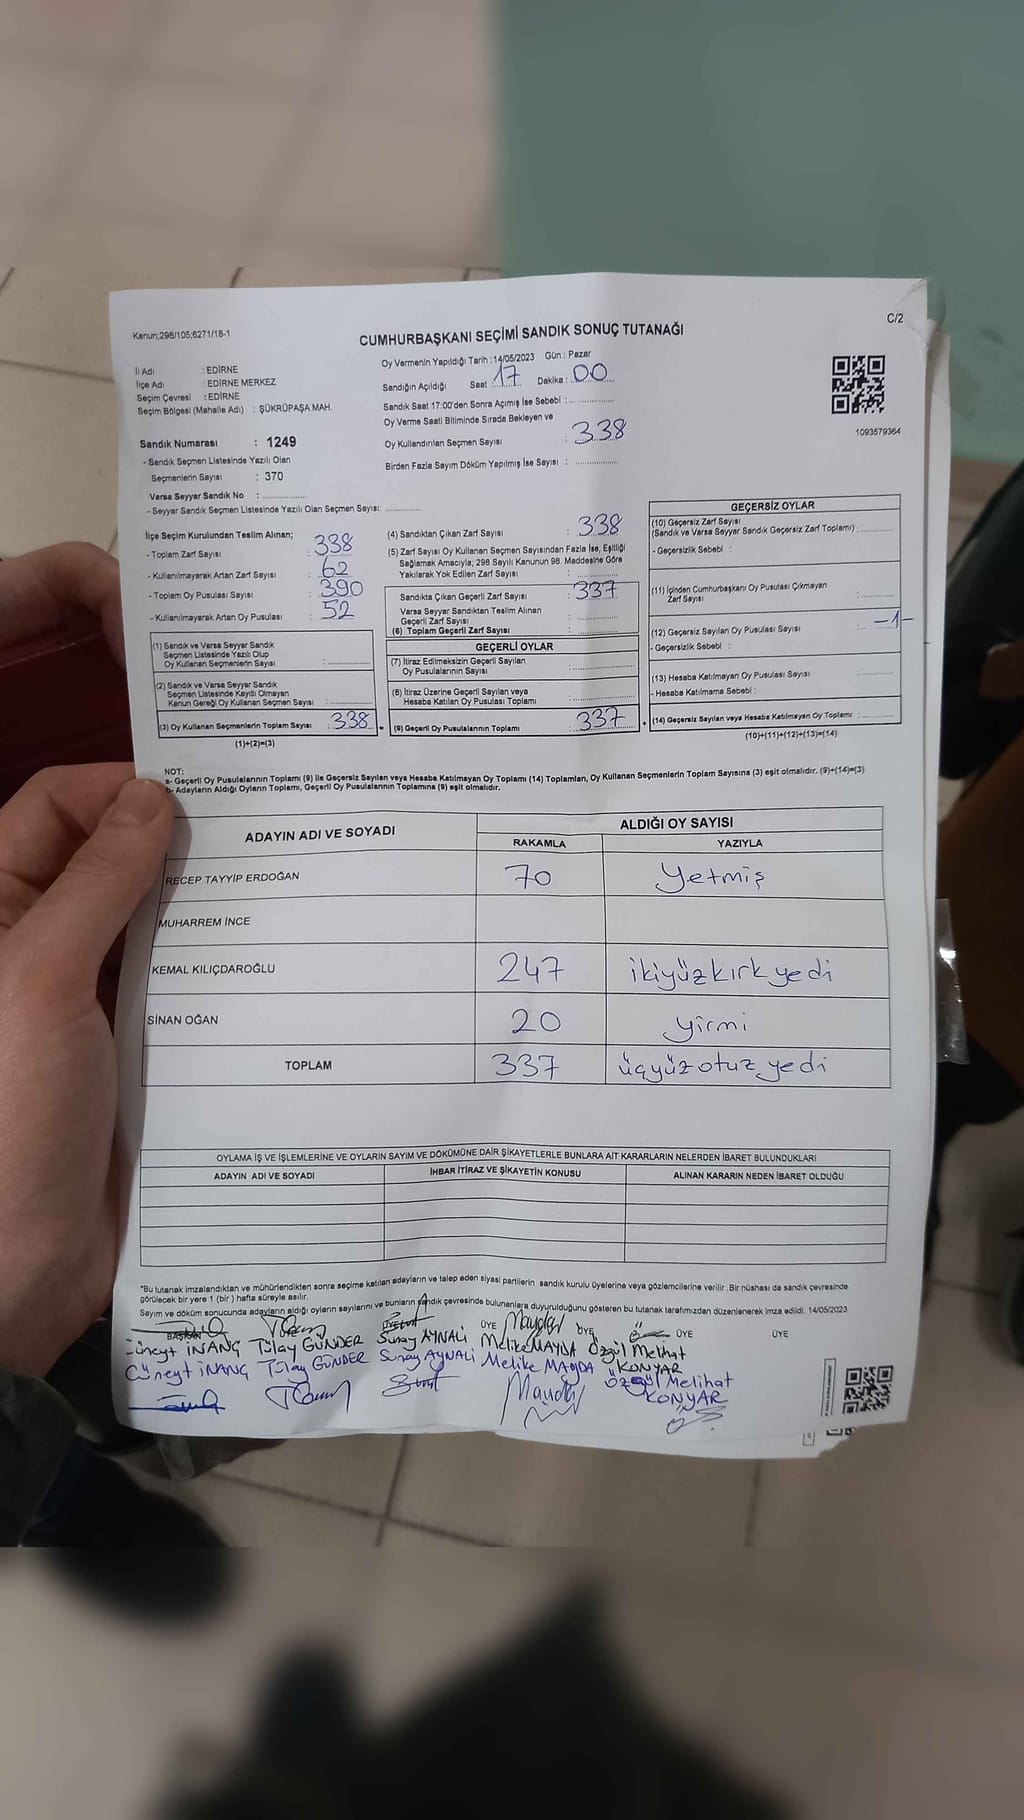 Kanun;298/105;6271/18-1
C/2
CUMHURBAŞKANI SEÇİMİ SANDIK SONUÇ TUTANAĞI
İl Adı : EDİRNE
İlçe Adı : EDİRNE MERKEZ
Seçim Çevresi : EDİRNE
Seçim Bölgesi (Mahalle Adı) : ŞÜKRÜPAŞA MAH.
Sandık Numarası : 1249
- Sandık Seçmen Listesinde Yazılı Olan
Seçmenlerin Sayısı : 370
Varsa Seyyar Sandık No : ..............
- Seyyar Sandık Seçmen Listesinde Yazılı Olan Seçmen Sayısı: ..............
Oy Vermenin Yapıldığı Tarih : 14/05/2023 Gün : Pazar
Sandığın Açıldığı Saat : 17 Dakika : 00
Sandık Saat 17:00'den Sonra Açımış İse Sebebi : ..............
Oy Verme Saati Bitiminde Sırada Bekleyen ve
Oy Kullandırılan Seçmen Sayısı : 338
Birden Fazla Sayım Döküm Yapılmış İse Sayısı : ..............
1093579364
İlçe Seçim Kurulundan Teslim Alınan;
- Toplam Zarf Sayısı : 338
- Kullanılmayarak Artan Zarf Sayısı : 62
- Toplam Oy Pusulası Sayısı : 390
- Kullanılmayarak Artan Oy Pusulası : 52
(1) Sandık ve Varsa Seyyar Sandık
Seçmen Listesinde Yazılı Olup
Oy Kullanan Seçmenlerin Sayısı : ..............
(2) Sandık ve Varsa Seyyar Sandık
Seçmen Listesinde Kayıtlı Olmayan
Kanun Gereği Oy Kullanan Seçmen Sayısı : ..............
(3) Oy Kullanan Seçmenlerin Toplam Sayısı : 338 =
(1)+(2)=(3)
(4) Sandıktan Çıkan Zarf Sayısı : 338
(5) Zarf Sayısı Oy Kullanan Seçmen Sayısından Fazla İse, Eşitliği
Sağlamak Amacıyla; 298 Sayılı Kanunun 98. Maddesine Göre
Yakılarak Yok Edilen Zarf Sayısı : ..............
Sandıkta Çıkan Geçerli Zarf Sayısı : 337
Varsa Seyyar Sandıktan Teslim Alınan
Geçerli Zarf Sayısı : ..............
(6) Toplam Geçerli Zarf Sayısı : ..............
GEÇERLİ OYLAR
(7) İtiraz Edilmeksizin Geçerli Sayılan
Oy Pusulalarının Sayısı : ..............
(8) İtiraz Üzerine Geçerli Sayılan veya
Hesaba Katılan Oy Pusulası Toplamı : ..............
(9) Geçerli Oy Pusulalarının Toplamı : 337 +
GEÇERSİZ OYLAR
(10) Geçersiz Zarf Sayısı
(Sandık ve Varsa Seyyar Sandık Geçersiz Zarf Toplamı) : ..............
- Geçersizlik Sebebi :
(11) İçinden Cumhurbaşkanı Oy Pusulası Çıkmayan
Zarf Sayısı : ..............
(12) Geçersiz Sayılan Oy Pusulası Sayısı : -1-
- Geçersizlik Sebebi :
(13) Hesaba Katılmayan Oy Pusulası Sayısı : ..............
- Hesaba Katılmama Sebebi :
(14) Geçersiz Sayılan veya Hesaba Katılmayan Oy Toplamı : ..............
(10)+(11)+(12)+(13)=(14)
NOT:
a- Geçerli Oy Pusulalarının Toplamı (9) ile Geçersiz Sayılan veya Hesaba Katılmayan Oy Toplamı (14) Toplamları, Oy Kullanan Seçmenlerin Toplam Sayısına (3) eşit olmalıdır. (9)+(14)=(3)
b- Adayların Aldığı Oyların Toplamı, Geçerli Oy Pusulalarının Toplamına (9) eşit olmalıdır.
ADAYIN ADI VE SOYADI
ALDIĞI OY SAYISI
RAKAMLA YAZIYLA
RECEP TAYYİP ERDOĞAN 70 Yetmiş
MUHARREM İNCE
KEMAL KILIÇDAROĞLU 247 ikiyüzkırkyedi
SİNAN OĞAN 20 yirmi
TOPLAM 337 üçyüzotuzyedi
OYLAMA İŞ VE İŞLEMLERİNE VE OYLARIN SAYIM VE DÖKÜMÜNE DAİR ŞİKAYETLERLE BUNLARA AİT KARARLARIN NELERDEN İBARET BULUNDUKLARI
ADAYIN ADI VE SOYADI İHBAR İTİRAZ VE ŞİKAYETİN KONUSU ALINAN KARARIN NEDEN İBARET OLDUĞU
"Bu tutanak imzalandıktan ve mühürlendikten sonra seçime katılan adayların ve talep eden siyasi partilerin sandık kurulu üyelerine veya gözlemcilerine verilir. Bir nüshası da sandık çevresinde
görülecek bir yere 1 (bir ) hafta süreyle asılır.
Sayım ve döküm sonucunda adayların aldığı oyların sayılarını ve bunların sandık çevresinde bulunanlara duyurulduğunu gösteren bu tutanak tarafımızdan düzenlenerek imza edildi. 14/05/2023
BAŞKAN ÜYE ÜYE ÜYE ÜYE
Cüneyt İNANÇ Tülay GÜNDER Sunay AYNALI Melike MAYDA Özgül Melihat
KONYAR
Cüneyt İNANÇ Tülay GÜNDER Sunay AYNALI Melike MAYDA Özgül Melihat
KONYAR